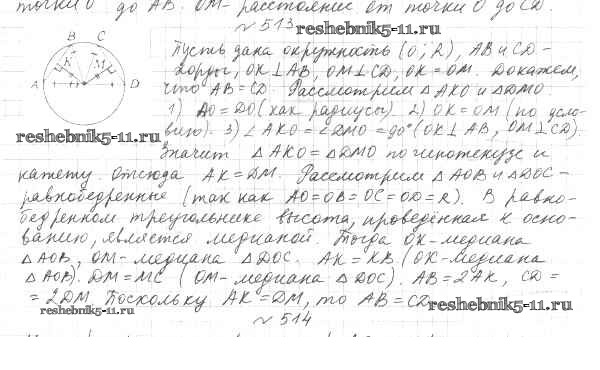 точки O до AB. OM-расстояние от точки O до CD.
№ 513
reshebnik5-11.ru
B C
K M
A D
Пусть дана окружность (O; R), AB и CD-
хорды, OK⊥AB, OM⊥CD, OK=OM. Докажем,
что AB=CD. Рассмотрим △AKO и △DMO:
1) AO=DO (как радиусы). 2) OK=OM (по усло-
reshebnik5-11.ru
вию). 3) ∠AKO=∠DMO=90° (OK⊥AB, OM⊥CD).
Значит △AKO=△DMO по гипотенузе и
катету. Отсюда AK=DM. Рассмотрим △AOB и △DOC-
равнобедренные (так как AO=OB=OC=OD=R). В равно-
бедренном треугольнике высота, проведённая к осно-
ванию, является медианой. Тогда OK-медиана
△AOB, OM-медиана △DOC. AK=KB (OK-медиана
△AOB). DM=MC (OM-медиана △DOC). AB=2AK, CD=
=2DM. Поскольку AK=DM, то AB=CD.
reshebnik5-11.ru
reshebnik5-11.ru
№ 514